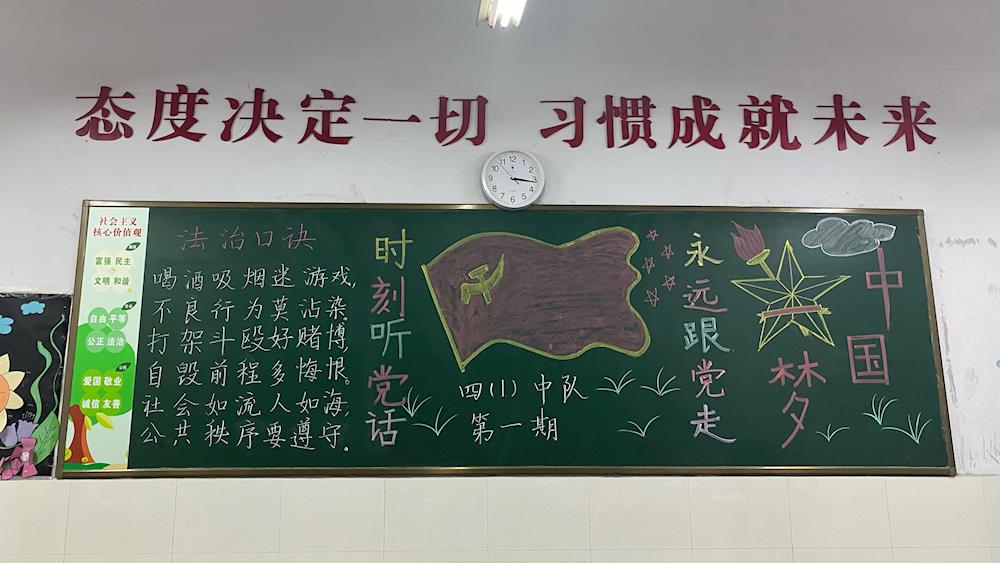 态度决定一切 习惯成就未来
社会主义
核心价值观
富强 民主
文明 和谐
自由 平等
公正 法治
爱国 敬业
诚信 友善
法治口诀
喝酒吸烟迷游戏,
不良行为莫沾染
打架斗殴好赌博,
自毁前程多悔恨。
社会如流人如海,
公共秩序要遵守。
时刻听党话
四(1)中队
第一期
永远跟党走
中国
梦
12
1
2
3
4
5
6
7
8
9
10
11